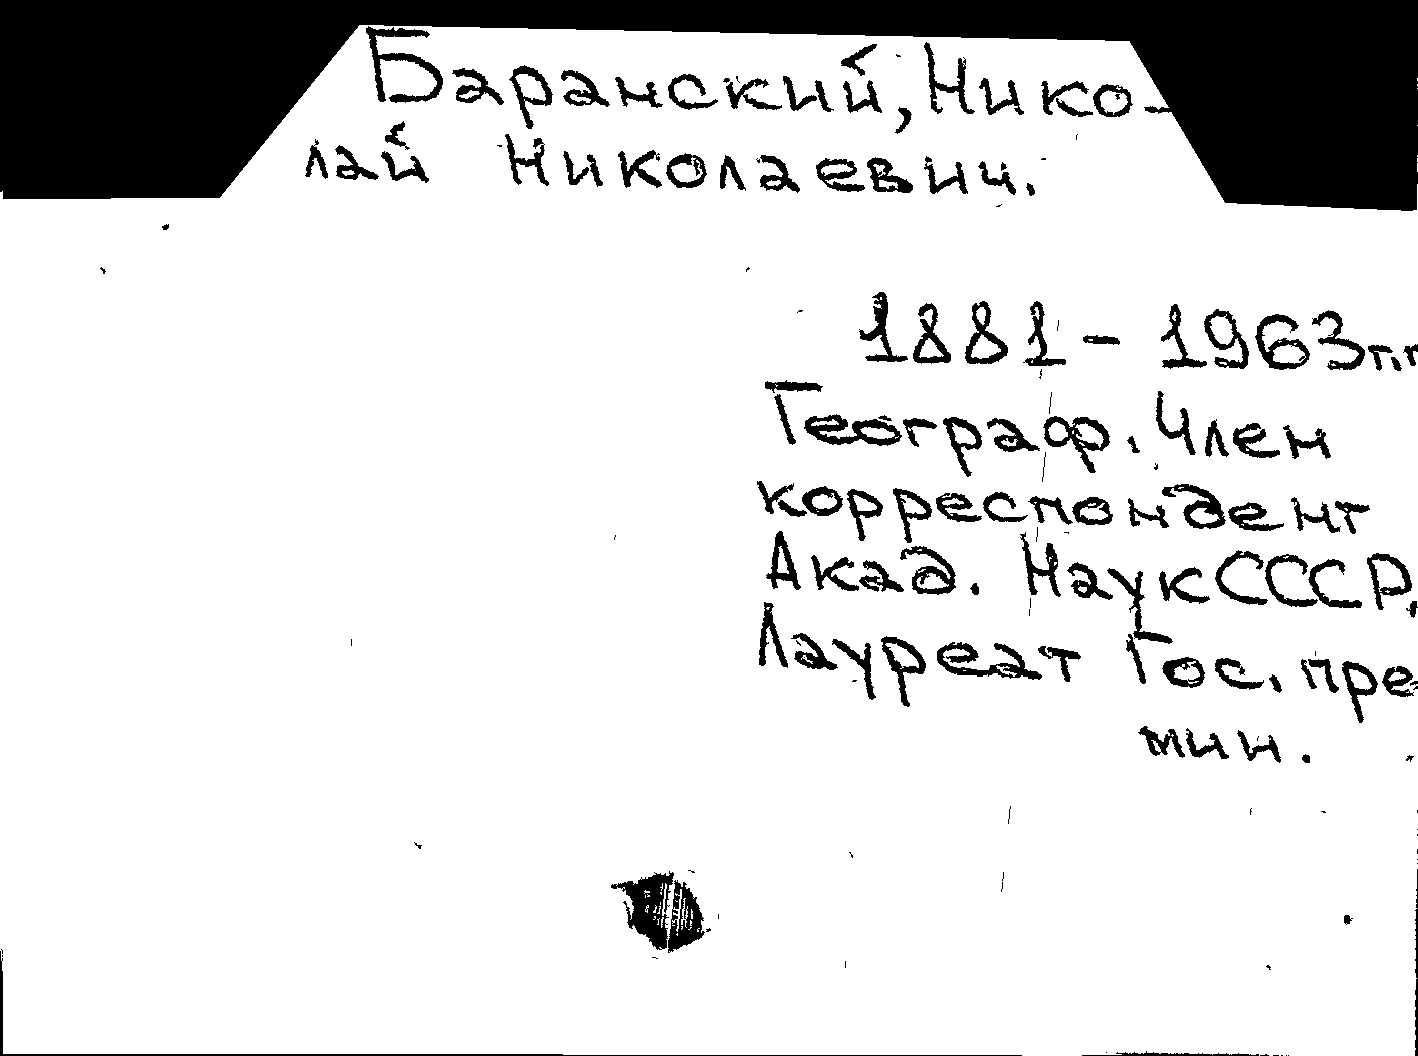 Баранский, Нико-
лай Николаевич.
1881 - 1963 г.г
Географ. Член
корреспондент
Акад. Наук СССР,
Лауреат Гос. пре
мии.